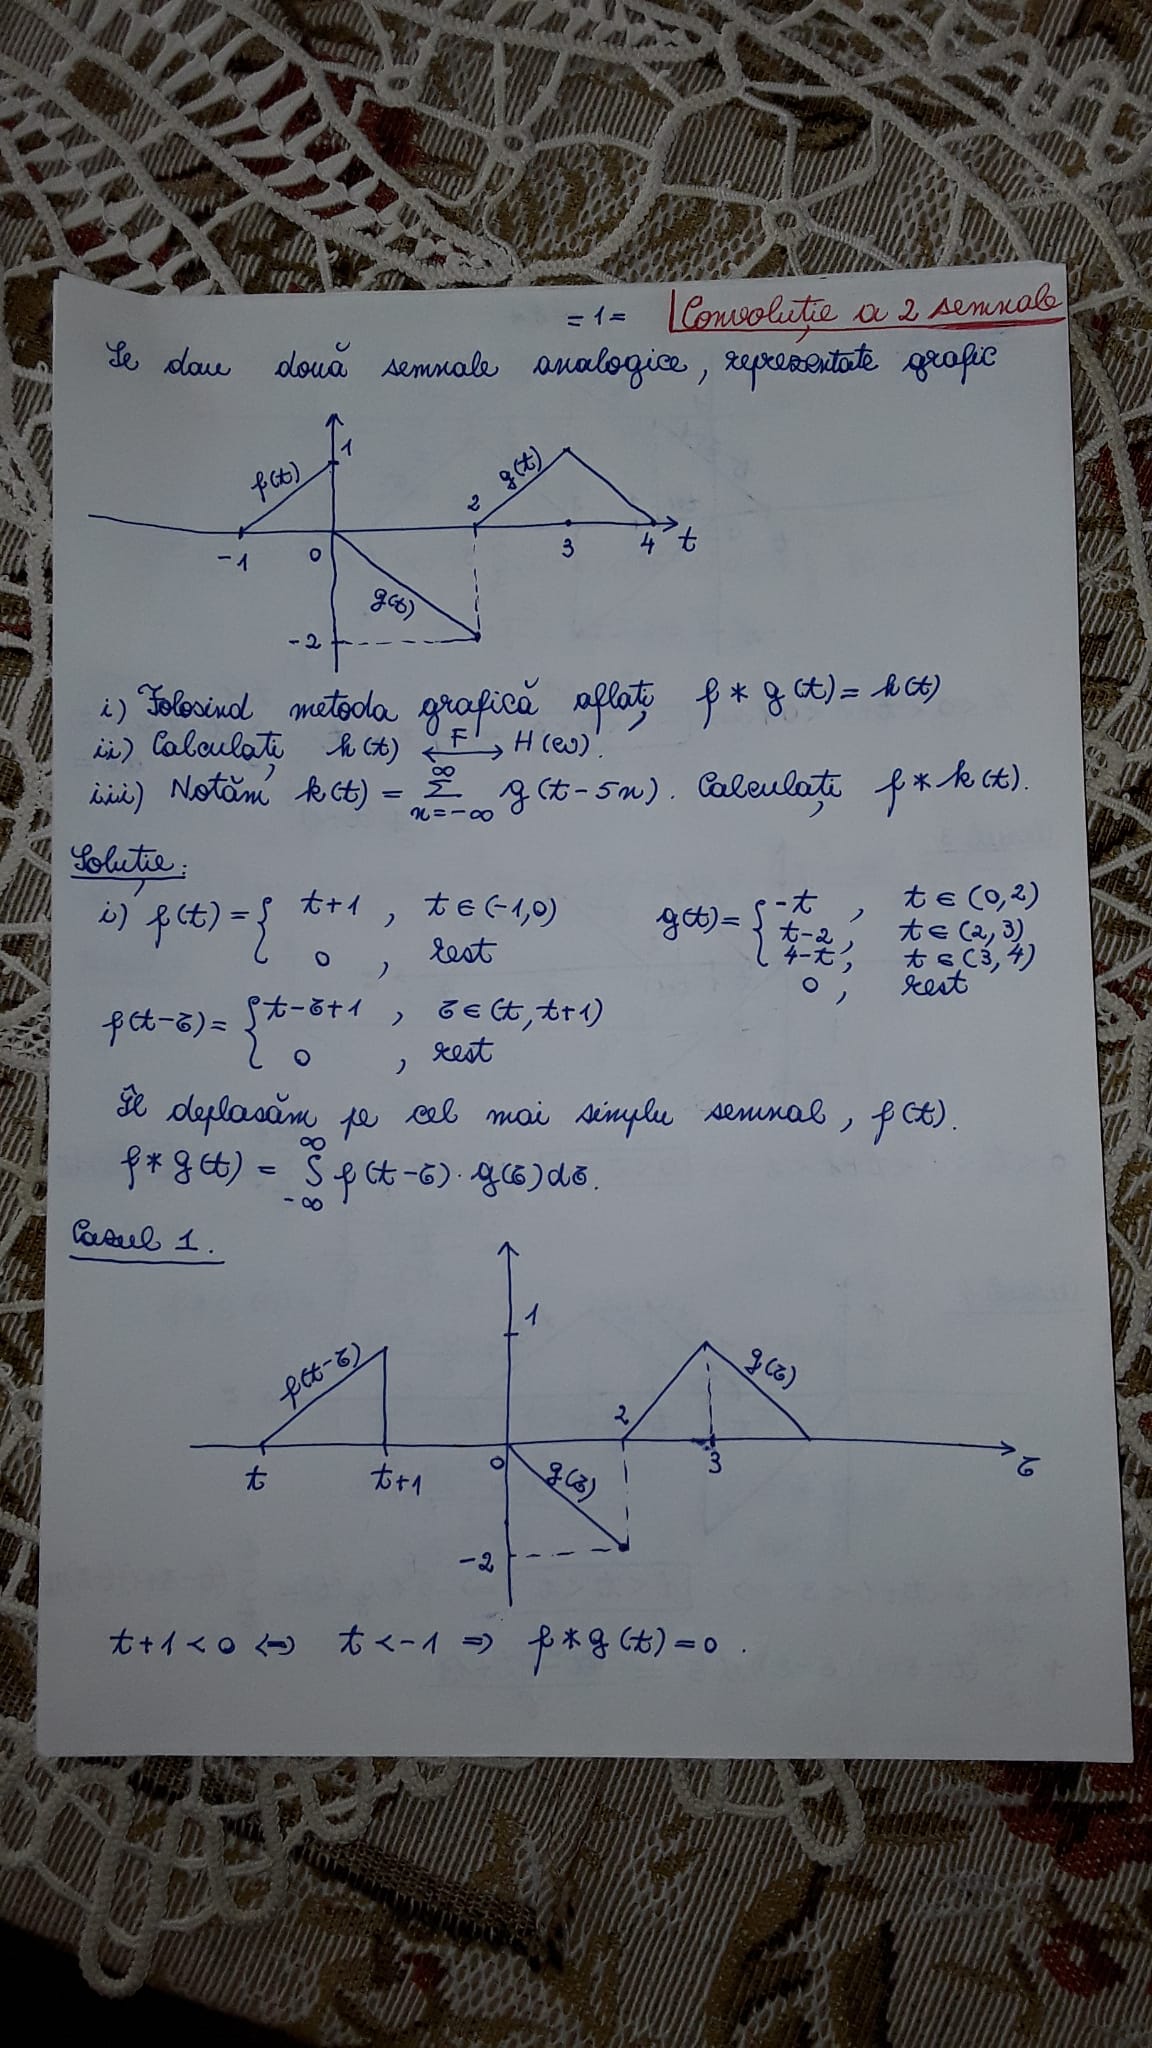 = 1 =
Convoluție a 2 semnale
Se dau două semnale analogice, reprezentate grafic
1
f(t)
g(t)
2
-1
0
3
4
t
g(t)
-2
i) Folosind metoda grafică aflați f * g(t) = h(t)
ii) Calculați h(t) <--F--> H(ω).
iii) Notăm k(t) = ∞ Σ n=-∞ g(t-5n). Calculați f * k(t).
Soluție:
i) f(t) = { t+1 , t ∈ (-1,0)
0 , rest
g(t) = { -t , t ∈ (0,2)
t-2 , t ∈ (2,3)
4-t , t ∈ (3,4)
0 , rest
f(t-τ) = { t-τ+1 , τ ∈ (t, t+1)
0 , rest
Îl deplasăm pe cel mai simplu semnal, f(t).
f * g(t) = ∞ ∫ -∞ f(t-τ) · g(τ) dτ.
Cazul 1.
1
f(t-τ)
g(τ)
2
t
t+1
0
3
τ
g(τ)
-2
t+1 < 0 <=> t < -1 => f * g(t) = 0 .